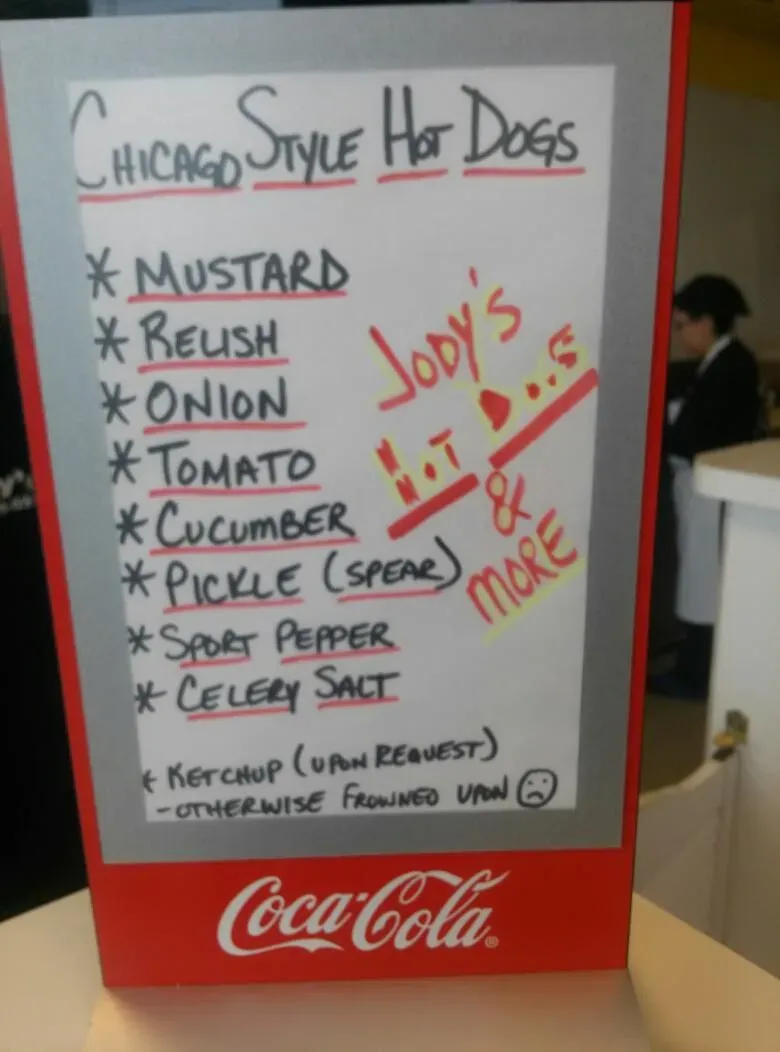 CHICAGO STYLE HOT DOGS
* MUSTARD
* RELISH
* ONION
* TOMATO
* CUCUMBER
* PICKLE (SPEAR)
* SPORT PEPPER
* CELERY SALT
* KETCHUP (UPON REQUEST)
- OTHERWISE FROWNED UPON
JODY'S
HOT DOGS
&
MORE
Coca-Cola®